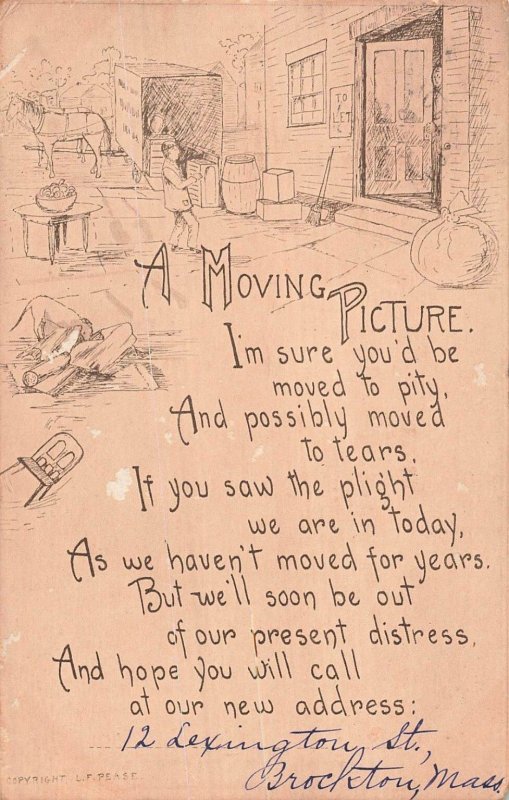 TO
LET
A MOVING PICTURE.
I'm sure you'd be
moved to pity,
And possibly moved
to tears,
If you saw the plight
we are in today,
As we haven't moved for years.
But we'll soon be out
of our present distress,
And hope you will call
at our new address:
12 Lexington St.,
Brockton, Mass.
COPYRIGHT L.F. PEASE.